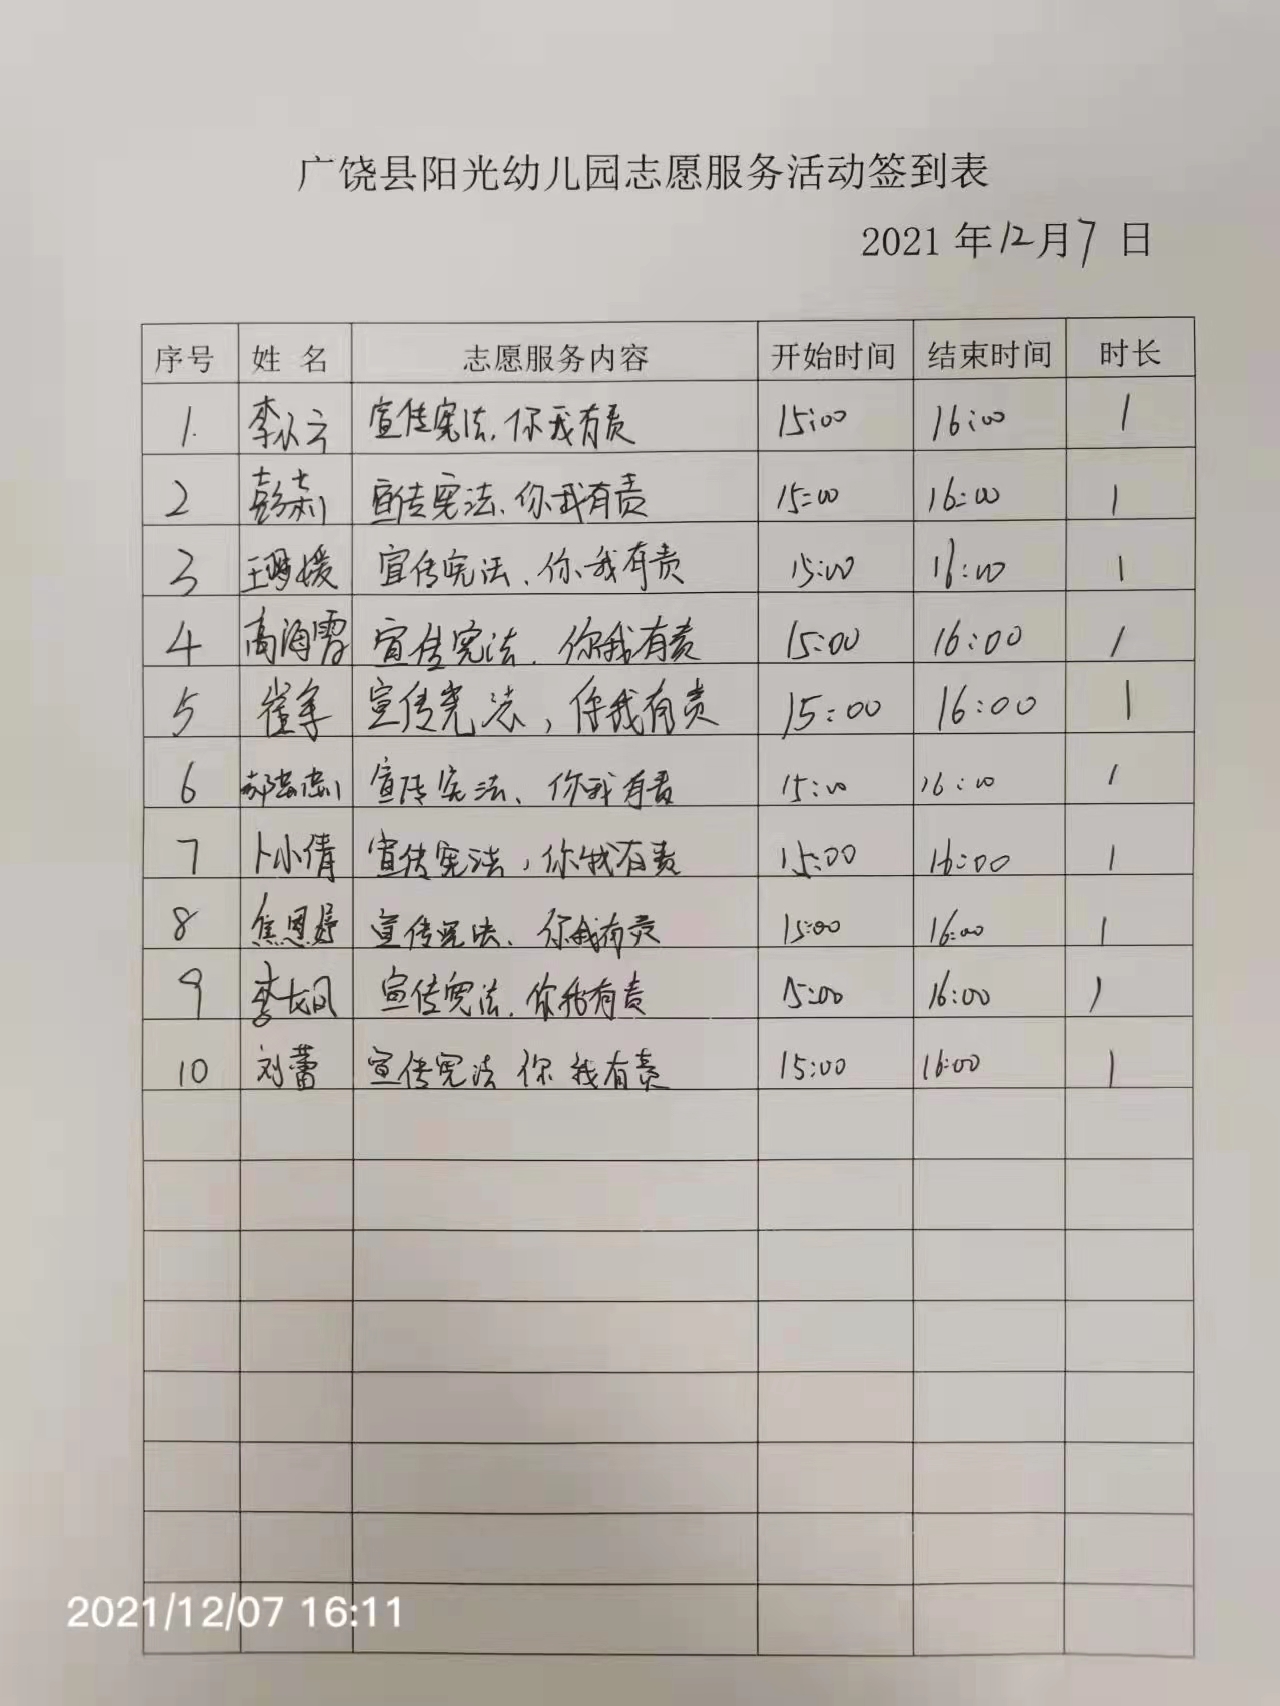 广饶县阳光幼儿园志愿服务活动签到表
2021 年 12 月 7 日
序号 姓 名 志愿服务内容 开始时间 结束时间 时长
1. 李从云 宣传宪法、你我有责 15:00 16:00 1
2 彭莉 宣传宪法、你我有责 15:00 16:00 1
3 王 媛 宣传宪法、你我有责 15:00 16:00 1
4 高海霞 宣传宪法、你我有责 15:00 16:00 1
5 崔 宣传宪法，你我有责 15:00 16:00 1
6 宣传宪法、你我有责 15:00 16:00 1
7 卜小倩 宣传宪法，你我有责 15:00 16:00 1
8 焦恩婷 宣传宪法、你我有责 15:00 16:00 1
9 李龙凤 宣传宪法、你我有责 15:00 16:00 1
10 刘蕾 宣传宪法 你我有责 15:00 16:00 1
2021/12/07 16:11